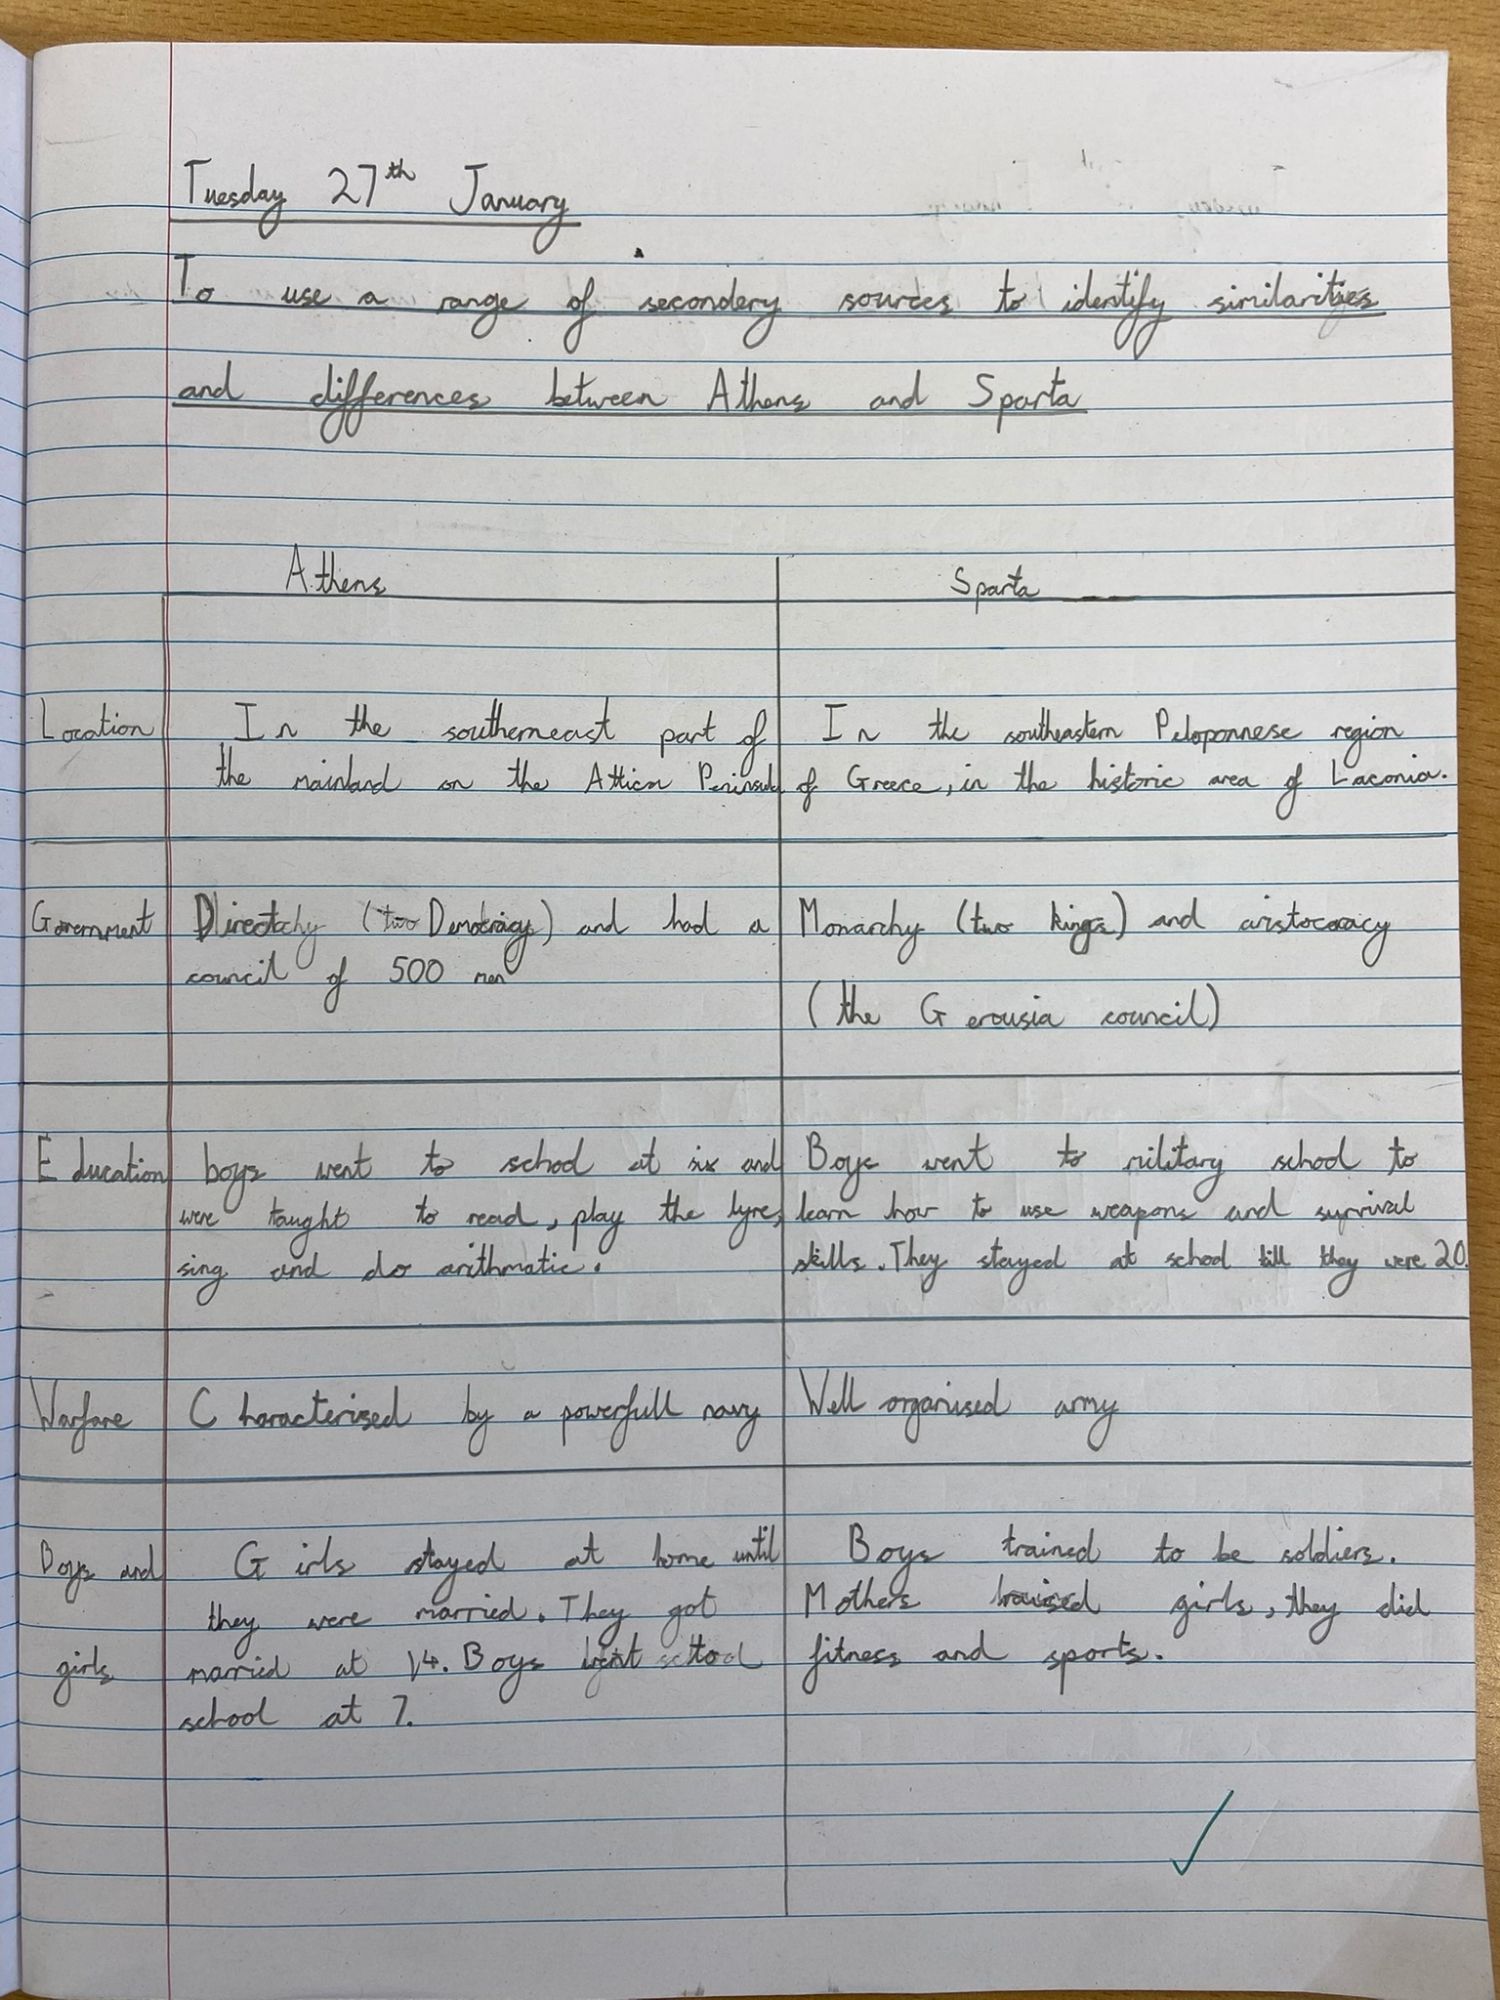 Tuesday 27th January
To use a range of secondery sources to identify similarities
and differences between Athens and Sparta
Athens Sparta
Location In the southerneast part of In the southeastern Peloponnese region
the mainland on the Attica Peninsula of Greece, in the historic area of Laconia.
Government (two Democracy) and had a Monarchy (two kings) and aristocoracy
council of 500 men
(the Gerousia council)
Education boys went to school at six and Boys went to military school to
were taught to read, play the lyre, learn how to use weapons and survival
sing and do arithmatic. skills. They stayed at school till they were 20.
Warfare Characterised by a powerfull navy Well organised army
Boys and Girls stayed at home until Boys trained to be soldiers.
they were married. They got Mothers raised girls, they did
girls married at 14. Boys fitness and sports.
school at 7.